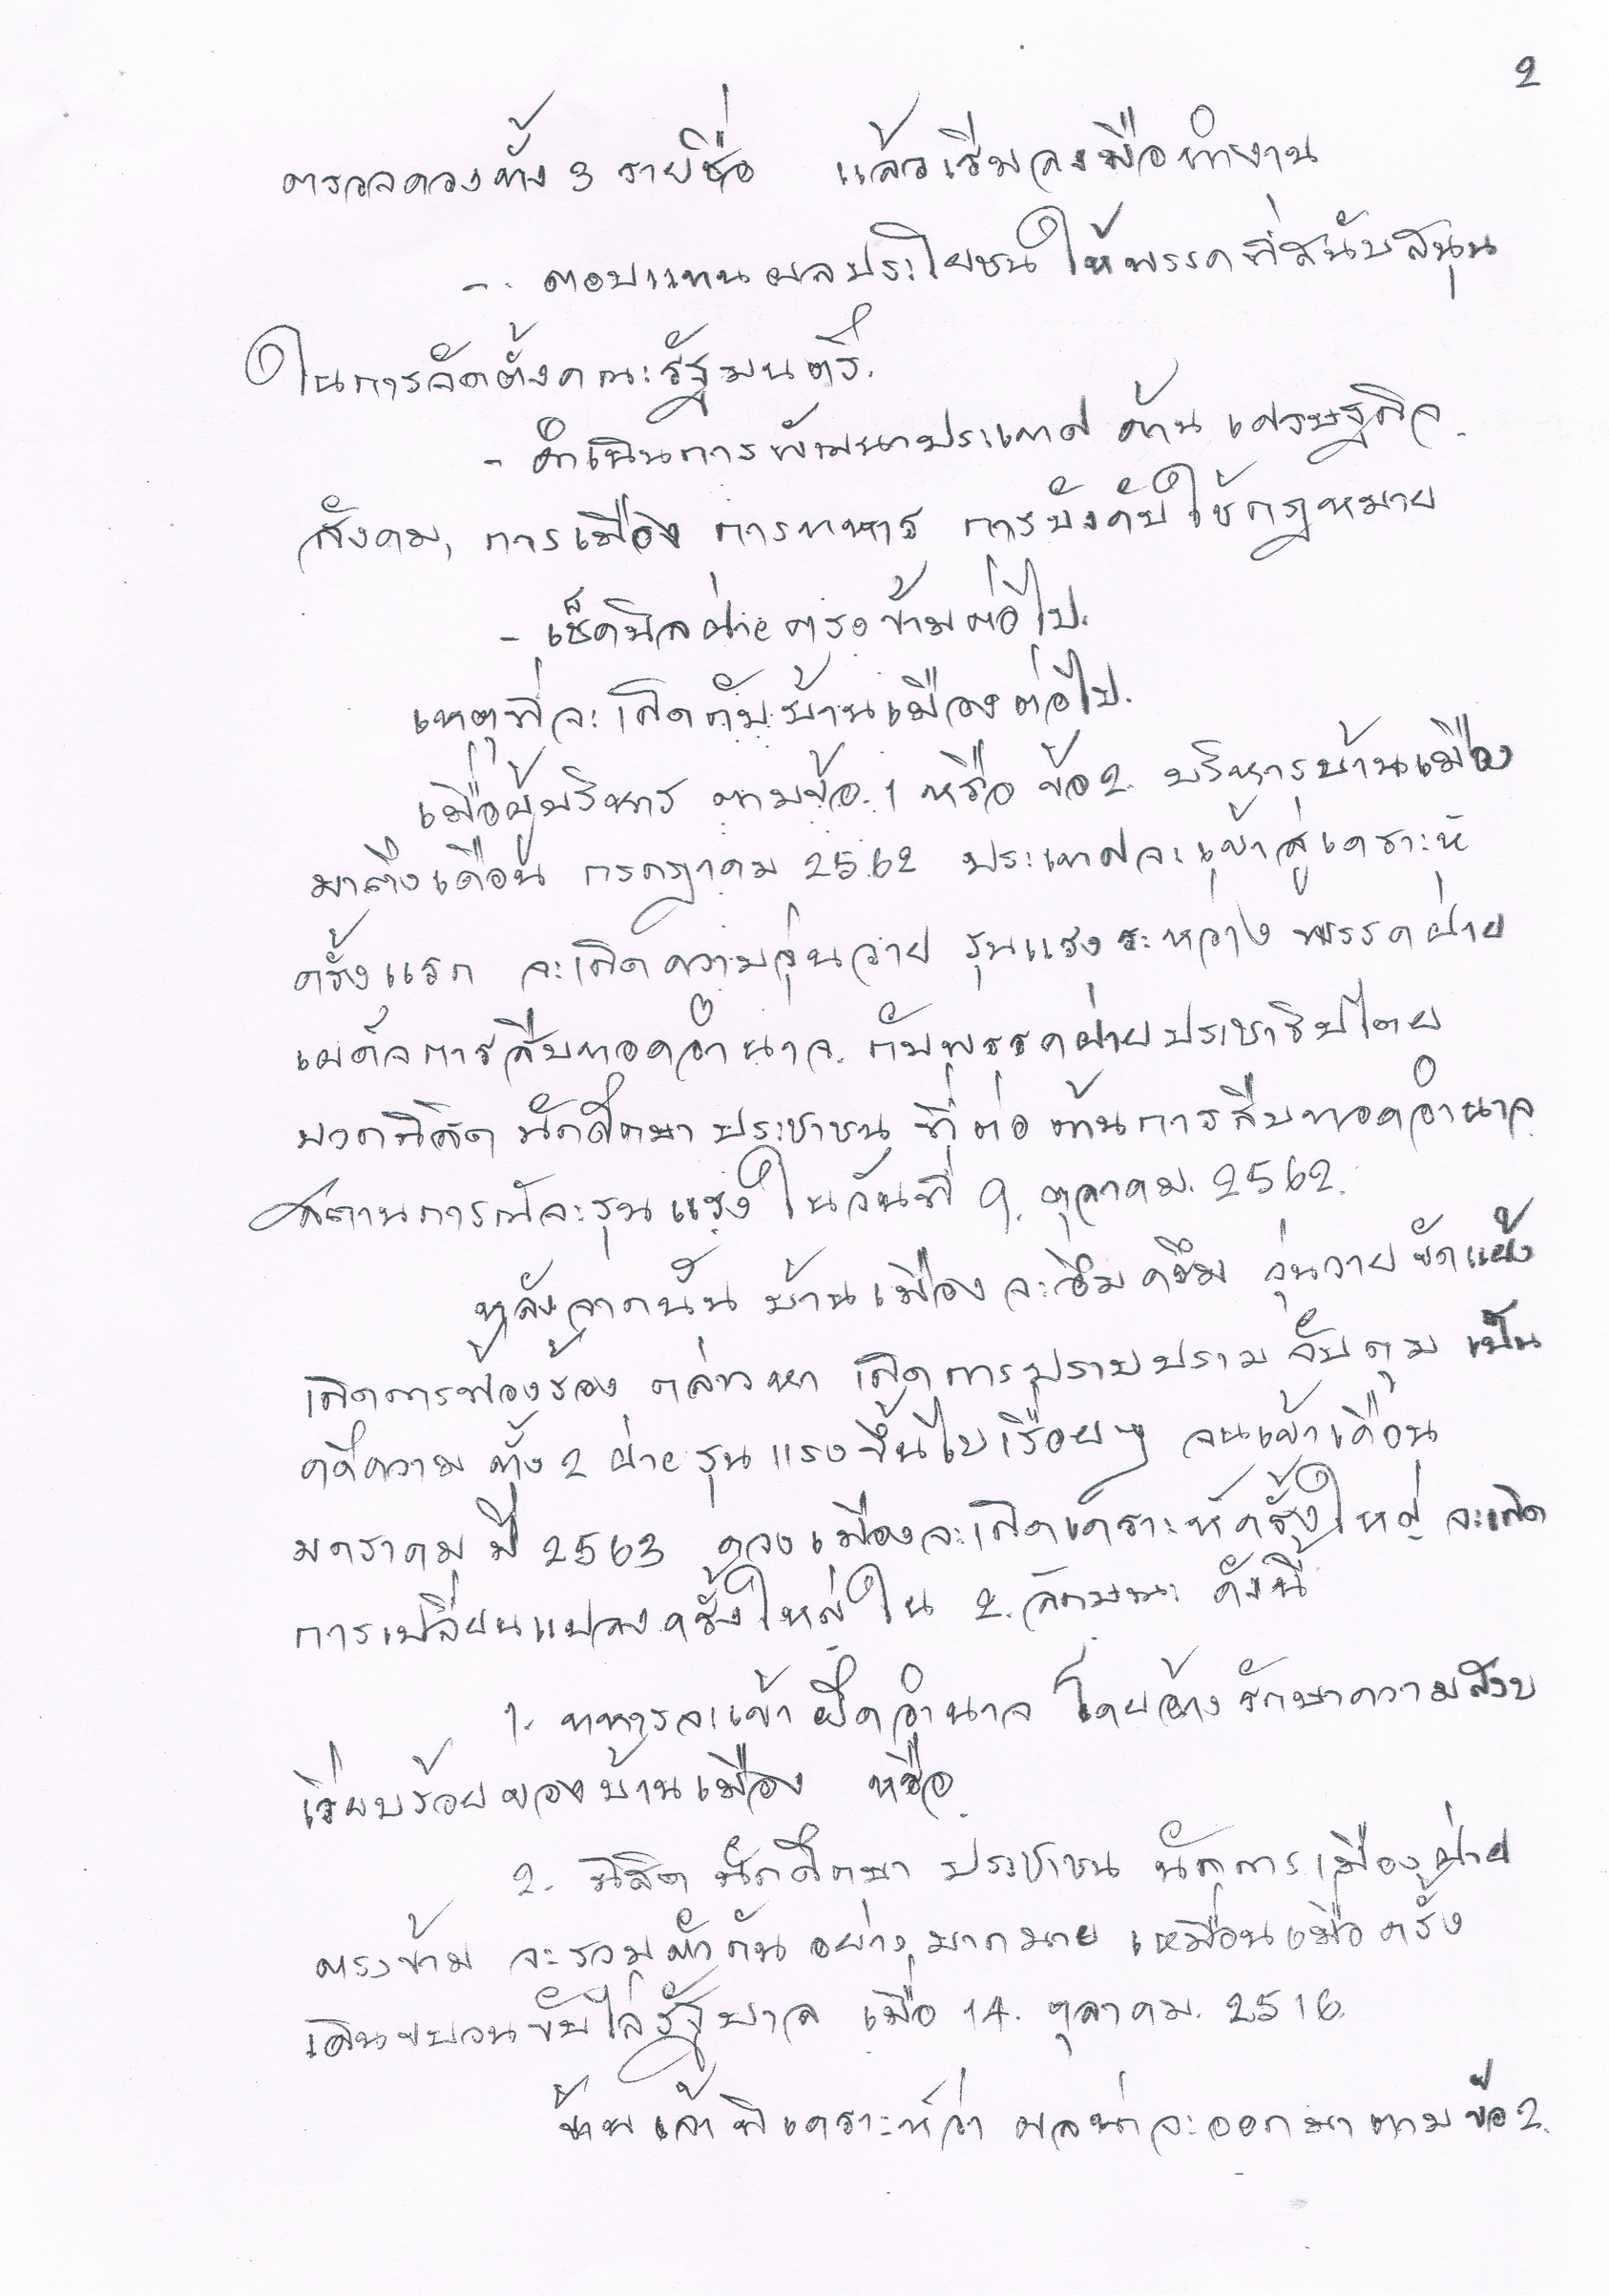 2
ตรวจดวงทั้ง 3 รายชื่อ แล้วเริ่มลงมือทำงาน
- ตอบแทนผลประโยชน์ให้พรรคที่สนับสนุน
ในการจัดตั้งคณะรัฐมนตรี.
- ดำเนินการพัฒนาประเทศ ด้าน เศรษฐกิจ
สังคม, การเมือง การทหาร การบังคับใช้กฎหมาย
- เช็คบิลฝ่ายตรงข้ามต่อไป.
เหตุที่จะเกิดกับบ้านเมืองต่อไป.
เมื่อผู้บริหาร ตามข้อ 1 หรือ ข้อ 2 บริหารบ้านเมือง
มาถึงเดือน กรกฎาคม 2562 ประเทศจะเข้าสู่เคราะห์
ครั้งแรก จะเกิดความวุ่นวาย รุนแรงระหว่าง พรรคฝ่าย
เผด็จการสืบทอดอำนาจ กับพรรคฝ่ายประชาธิปไตย
บวกนิสิต นักศึกษา ประชาชน ที่ต่อต้านการสืบทอดอำนาจ
สถานการณ์จะรุนแรงในวันที่ 9 ตุลาคม. 2562.
หลังจากนั้น บ้านเมืองจะอึมครึม วุ่นวาย ขัดแย้ง
เกิดการฟ้องร้อง กล่าวหา เกิดการปราบปราม จับกุม เป็น
คดีความ ทั้ง 2 ฝ่าย รุนแรงขึ้นไปเรื่อยๆ จนเข้าเดือน
มกราคม ปี 2563 ดวงเมืองจะเกิดเคราะห์ครั้งใหญ่ จะเกิด
การเปลี่ยนแปลงครั้งใหญ่ใน 2 ลักษณะ ดังนี้
1. ทหารจะเข้ายึดอำนาจ โดยอ้างรักษาความสงบ
เรียบร้อยของบ้านเมือง หรือ
2. นิสิต นักศึกษา ประชาชน นักการเมืองฝ่าย
ตรงข้าม จะรวมตัวกันอย่างมากมาย เหมือนเมื่อครั้ง
เดินขบวนขับไล่รัฐบาล เมื่อ 14. ตุลาคม. 2516.
ข้าพเจ้าวิเคราะห์ว่า ผลน่าจะออกมาตามข้อ 2.